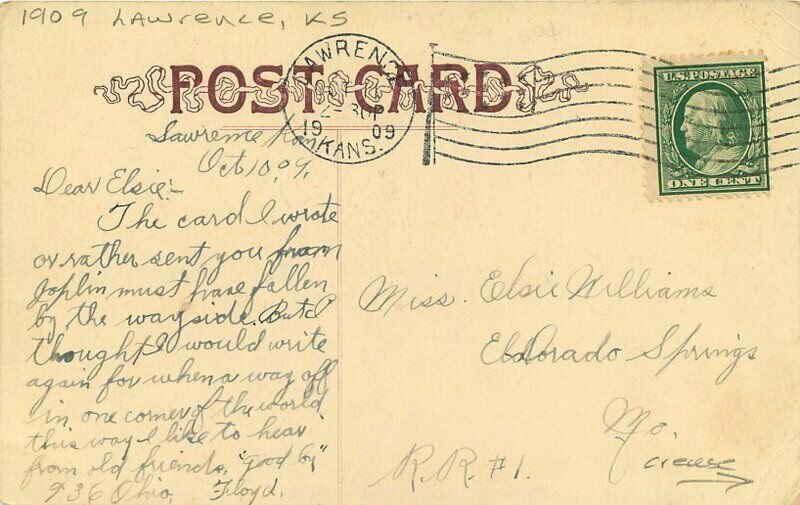 1909 LAWRENCE, KS
POST CARD
LAWRENCE
19 09
KANS.
U.S. POSTAGE
ONE CENT
Lawrence Kan
Oct 10, 09,
Dear Elsie:-
The card I wrote
or rather sent you from
Joplin must have fallen
by the wayside. But I
thought I would write
again for when a way off
in one corner of the world
this way I like to hear
from old friends, "good by"
936 Ohio. Floyd.
Miss. Elsie Williams
ElDorado Springs
Mo.
R.R. #1.
crease